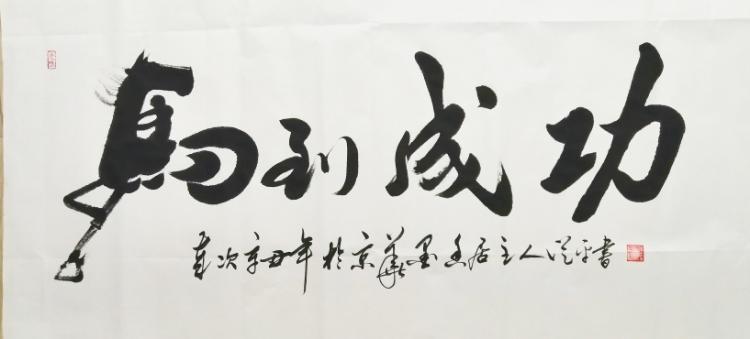 馬到成功
歲次辛丑年於京華墨香居主人從平書